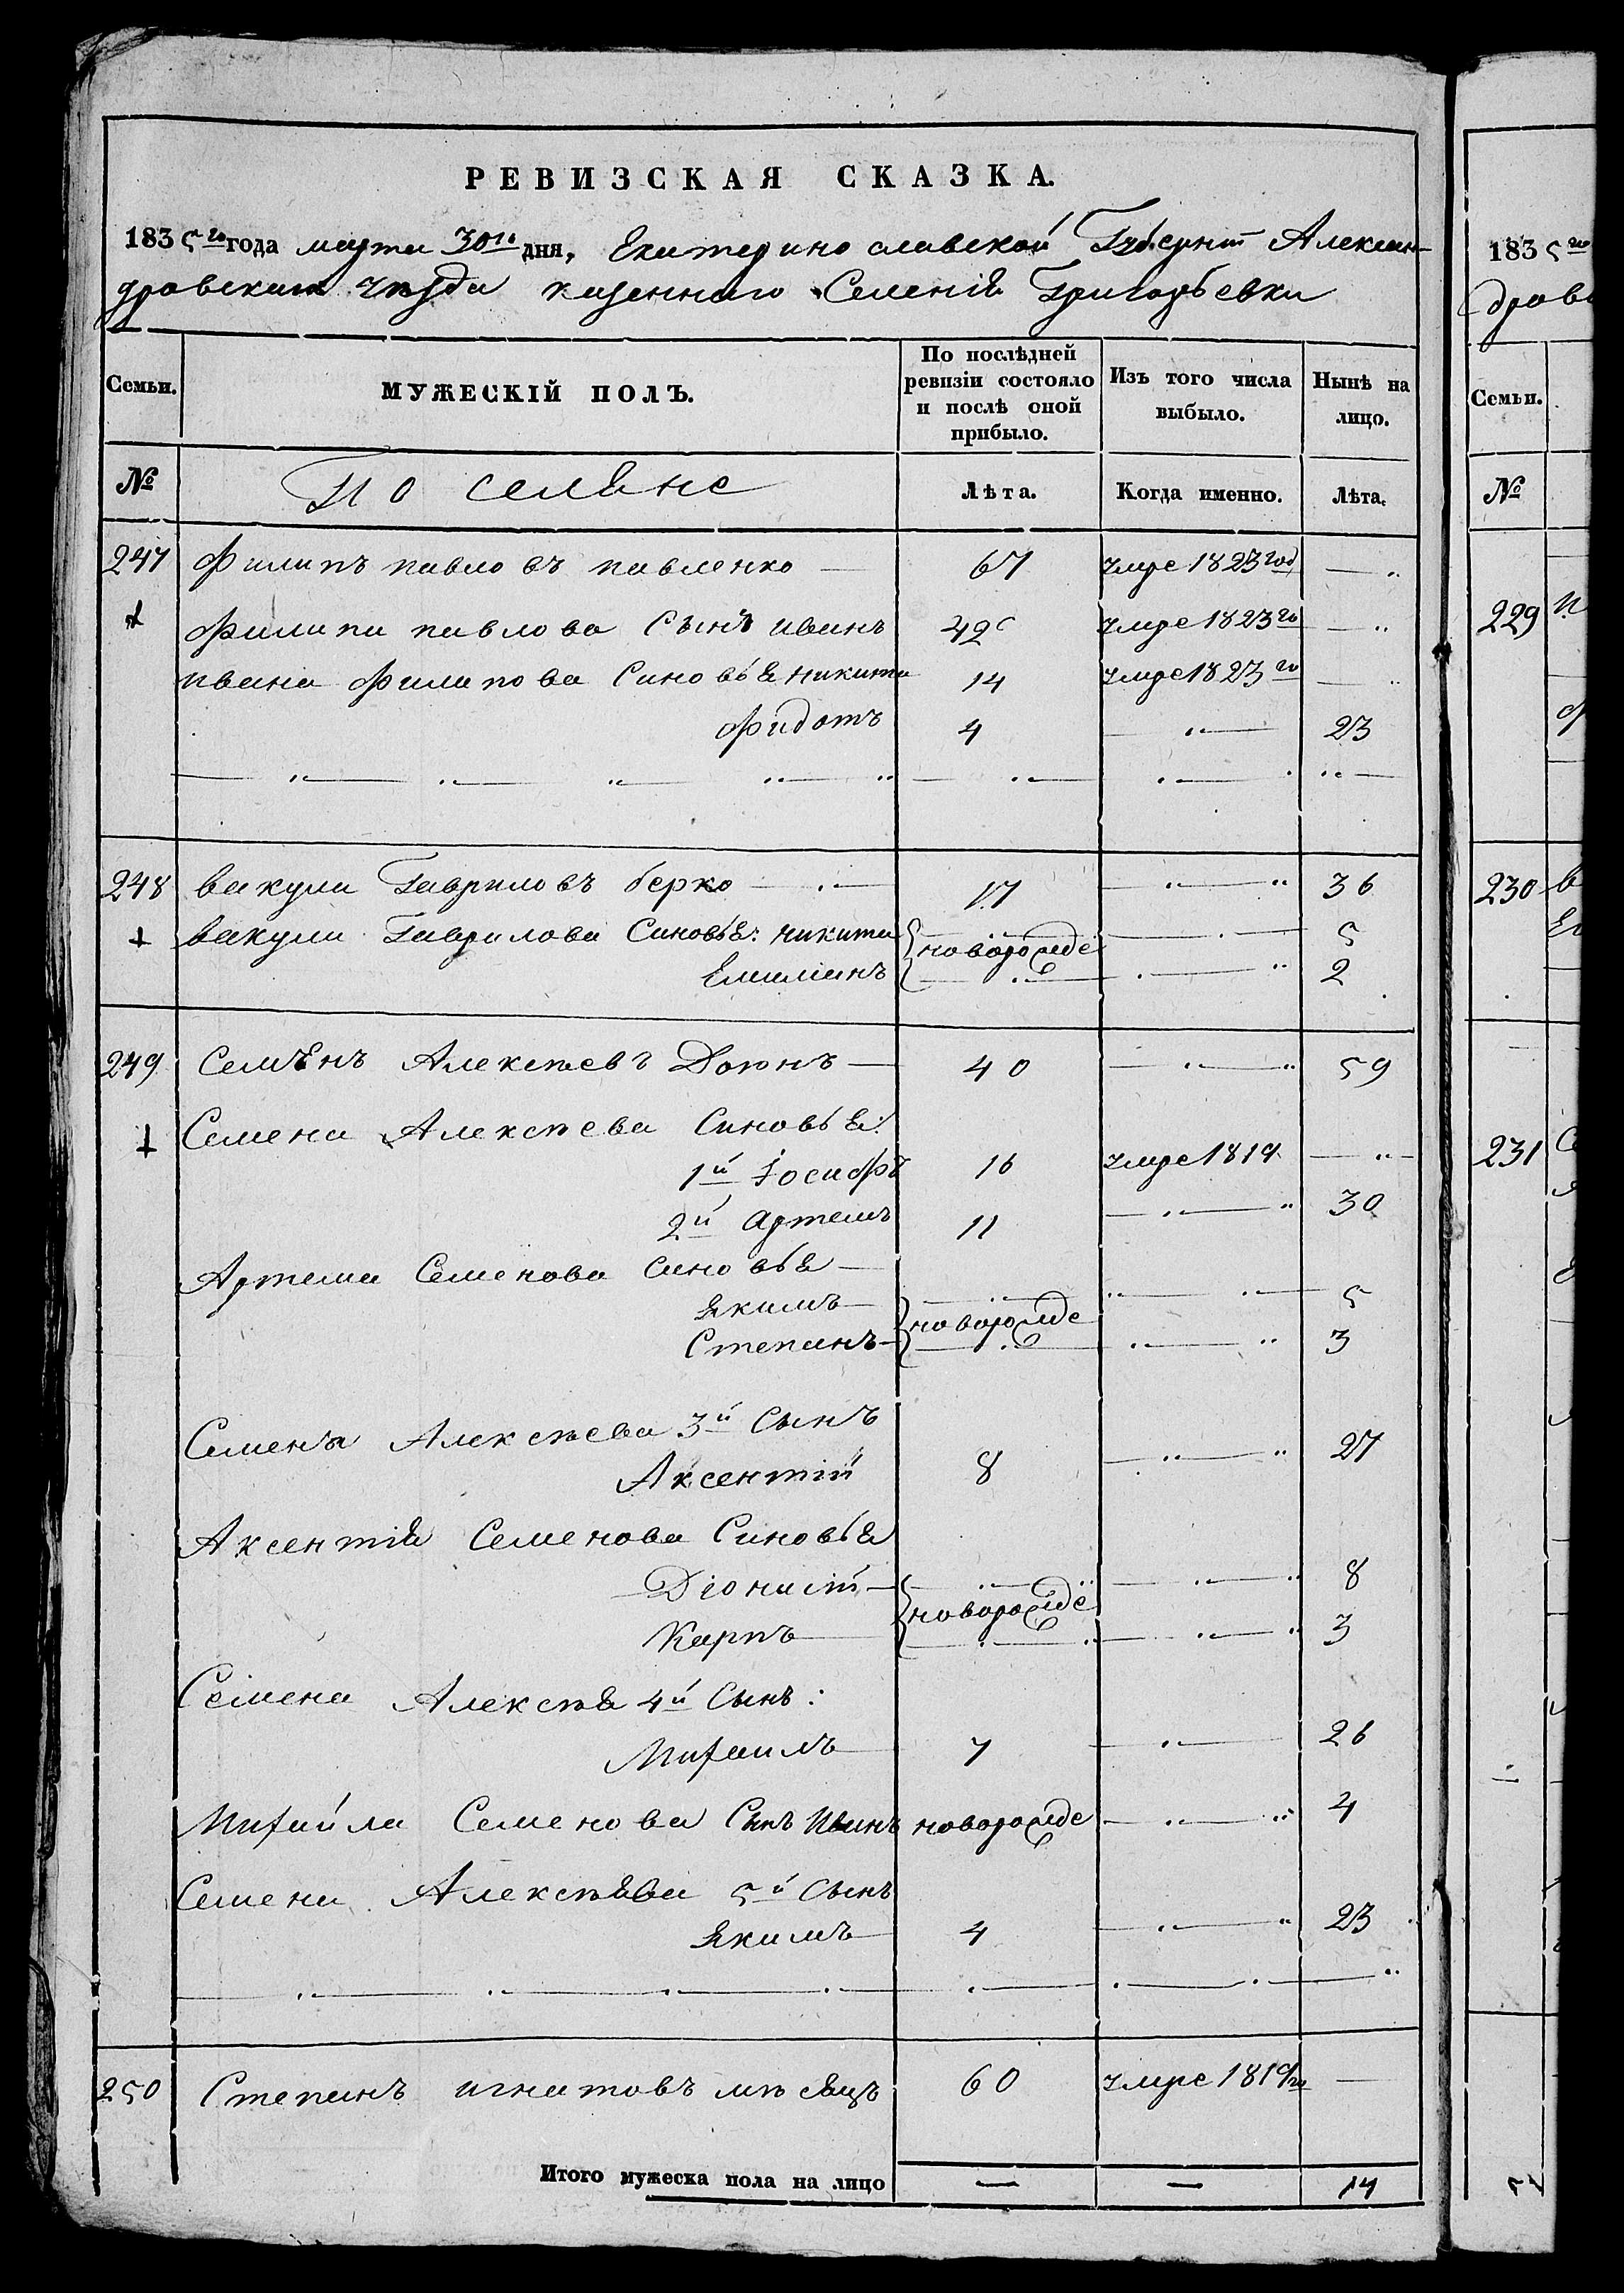 РЕВИЗСКАЯ СКАЗКА.
1835го года марта 30го дня, Екатеринославской Губерніи Алексан-
дровскаго уѣзда казенного Селенія Григорьевки
Семьи.
МУЖЕСКІЙ ПОЛЪ.
По послѣдней ревизіи состояло и послѣ оной прибыло.
Изъ того числа выбыло.
Нынѣ на лицо.
№ Поселяне Лѣта. Когда именно. Лѣта.
247 Филипъ павловъ павленко — 67 умре 1823год — „
+ Филипа павлова Сынъ иванъ 42 умре 1823го — „
ивана Филипова Синовья никита 14 умре 1823го — „
Фидотъ 4 — „ — 23
248 вакула Гавриловъ берко — 17 — „ — „ 36
+ вакулы Гаврилова Синовья: никита новорожде 5
Емиліанъ 2
249 Семенъ Алексѣевъ Доюнъ — 40 — „ — „ 59
+ Семена Алексѣева Синовья:
1й Іосифъ 16 умре 1819 — „ —
2й Артемъ 11 — „ — „ 30
Артема Семенова Синовья —
Якимъ — новорожде 5
Степанъ — 3
Семена Алексѣева 3й Сынъ
Аксентій 8 — „ — „ 27
Аксентія Семенова Синовья
Діонисій — новорожде 8
Карпъ 3
Семена Алексѣя 4й Сынъ:
Михаилъ 7 — „ — 26
Михайла Семенова Снъ Иванъ новорожде — „ — „ 4
Семена Алексѣява 5й Сынъ
Якимъ 4 — „ — „ 23
250 Степанъ игнатовъ мѣсяцъ 60 умре 1819го —
Итого мужеска пола на лицо — — 14
1835го
дров
Семьи.
№
229
230
231